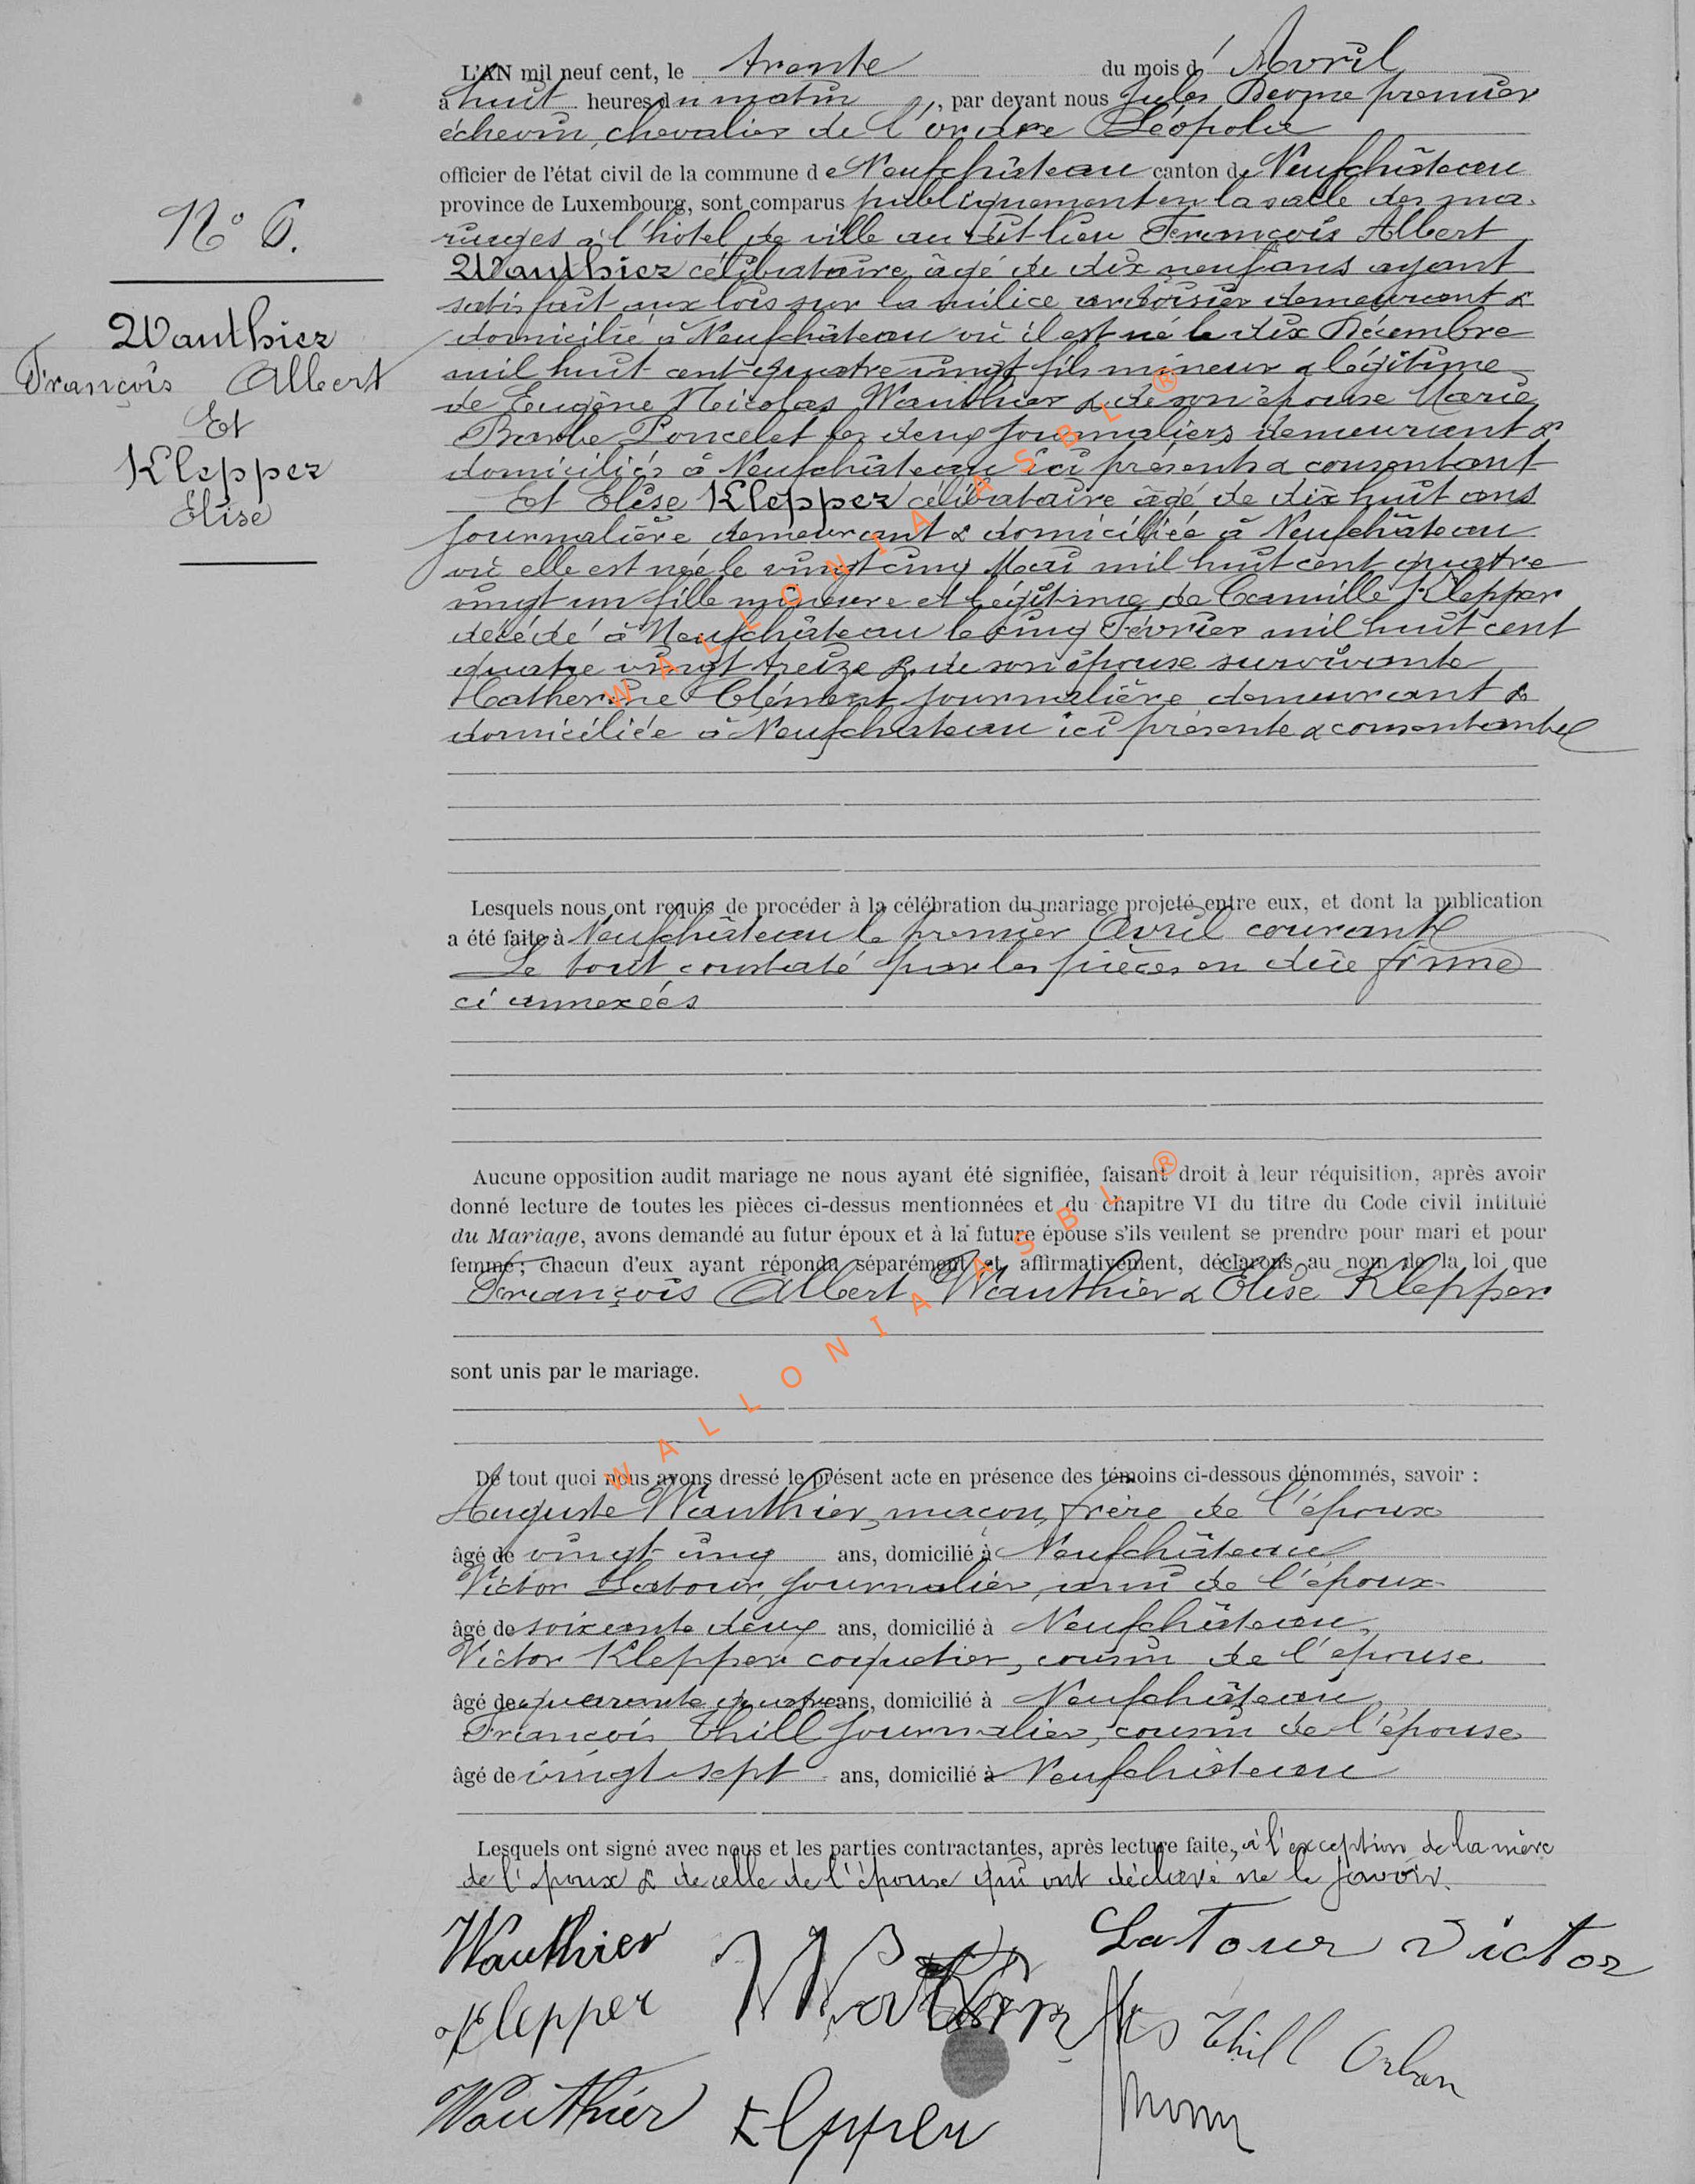 L'AN mil neuf cent, le trente du mois d' Avril
à huit heures du matin, par devant nous Jules premier
échevin, chevalier de l'ordre Léopold
officier de l'état civil de la commune de Neufchâteau canton de Neufchâteau
province de Luxembourg, sont comparus publiquement en la salle des ma-
riages à l'hôtel de ville au dit lieu François Albert
Wauthier célibataire, âgé de dix neuf ans ayant
satisfait aux lois sur la milice ardoisier demeurant &
domicilié à Neufchâteau où il est né le dix Décembre
mil huit cent quatre vingt fils mineur & légitime
de Eugène Nicolas Wauthier & de son épouse Marie
Barbe Poncelet les deux journaliers demeurant &
domiciliés à Neufchâteau ici présents & consentant
Et Elise Klepper célibataire âgé de dix huit ans
journalière demeurant & domiciliée à Neufchâteau
où elle est née le vingt cinq Mai mil huit cent quatre
vingt un fille mineure et légitime de Camille Klepper
décédé à Neufchâteau le cinq Février mil huit cent
quatre vingt treize & de son épouse survivante
Catherine Clément journalière demeurant &
domiciliée à Neufchâteau ici présente & consentante
N° 6.
Wauthier
François Albert
Et
Klepper
Elise
Lesquels nous ont requis de procéder à la célébration du mariage projeté entre eux, et dont la publication
a été faite à Neufchâteau le premier Avril courant
Le tout constaté par les pièces en due forme
ci annexées
Aucune opposition audit mariage ne nous ayant été signifiée, faisant droit à leur réquisition, après avoir
donné lecture de toutes les pièces ci-dessus mentionnées et du chapitre VI du titre du Code civil intitulé
du Mariage, avons demandé au futur époux et à la future épouse s'ils veulent se prendre pour mari et pour
femme; chacun d'eux ayant répondu séparément et affirmativement, déclarons au nom de la loi que
François Albert Wauthier & Elise Klepper
sont unis par le mariage.
De tout quoi nous avons dressé le présent acte en présence des témoins ci-dessous dénommés, savoir :
Auguste Wauthier, maçon, frère de l'époux
âgé de vingt cinq ans, domicilié à Neufchâteau
Victor Latour, journalier, ami de l'époux
âgé de soixante deux ans, domicilié à Neufchâteau,
Victor Klepper coquetier, cousin de l'épouse
âgé de quarante quatre ans, domicilié à Neufchâteau,
François Thill journalier, cousin de l'épouse
âgé de vingt sept ans, domicilié à Neufchâteau
Lesquels ont signé avec nous et les parties contractantes, après lecture faite, à l'exception de la mère
de l'époux & de celle de l'épouse qui ont déclaré ne le savoir.
Wauthier
LaTour Victor
Klepper
Thill
Wauthier
Klepper
WALLONIA ASBL ®
WALLONIA ASBL ®